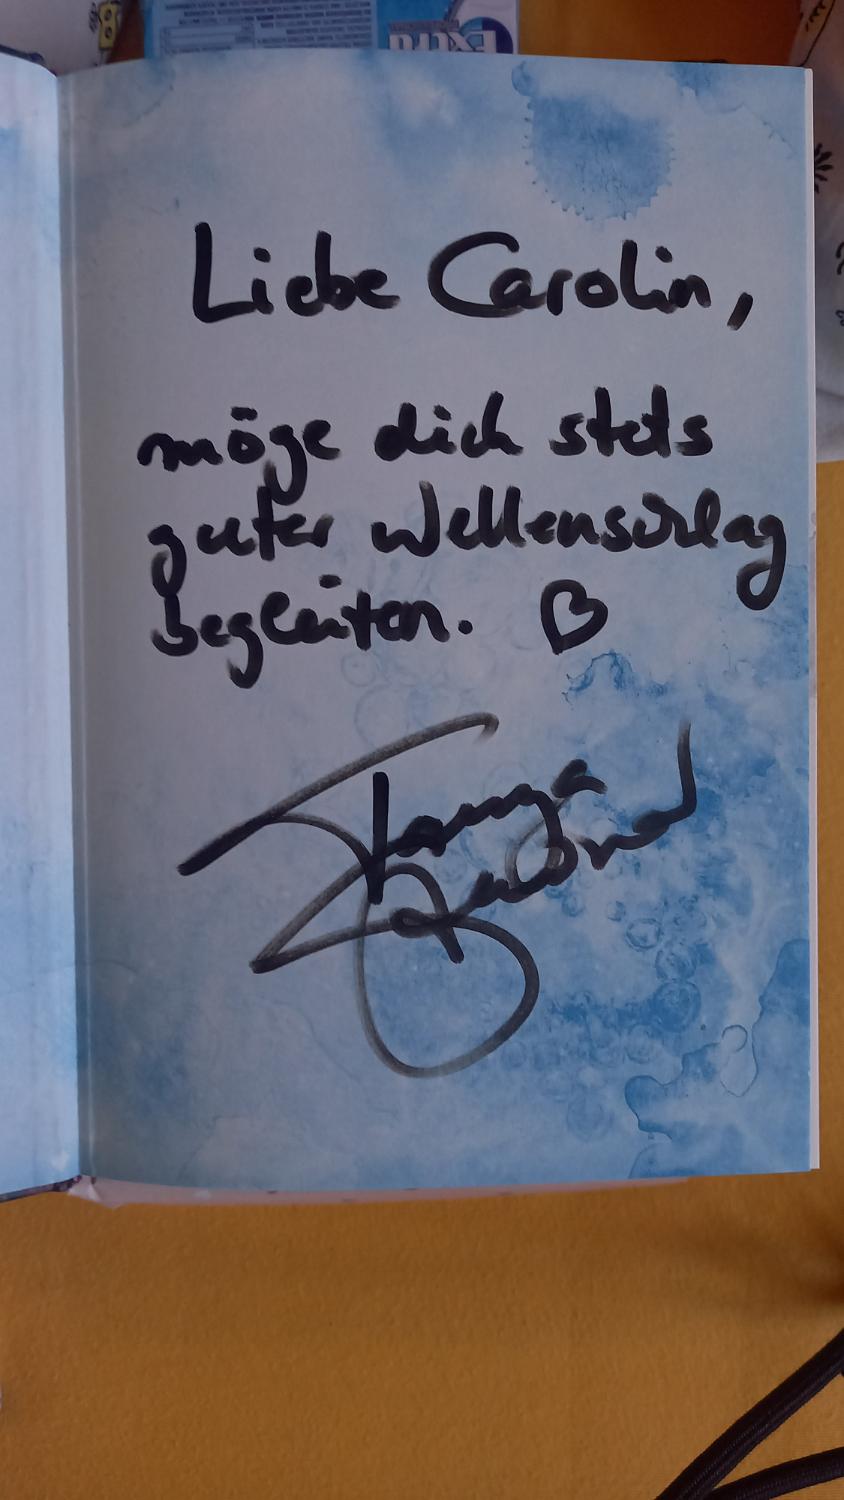 Extra
Liebe Carolin,
möge dich stets
guter Wellenschlag
begleiten. ♡
Tanya